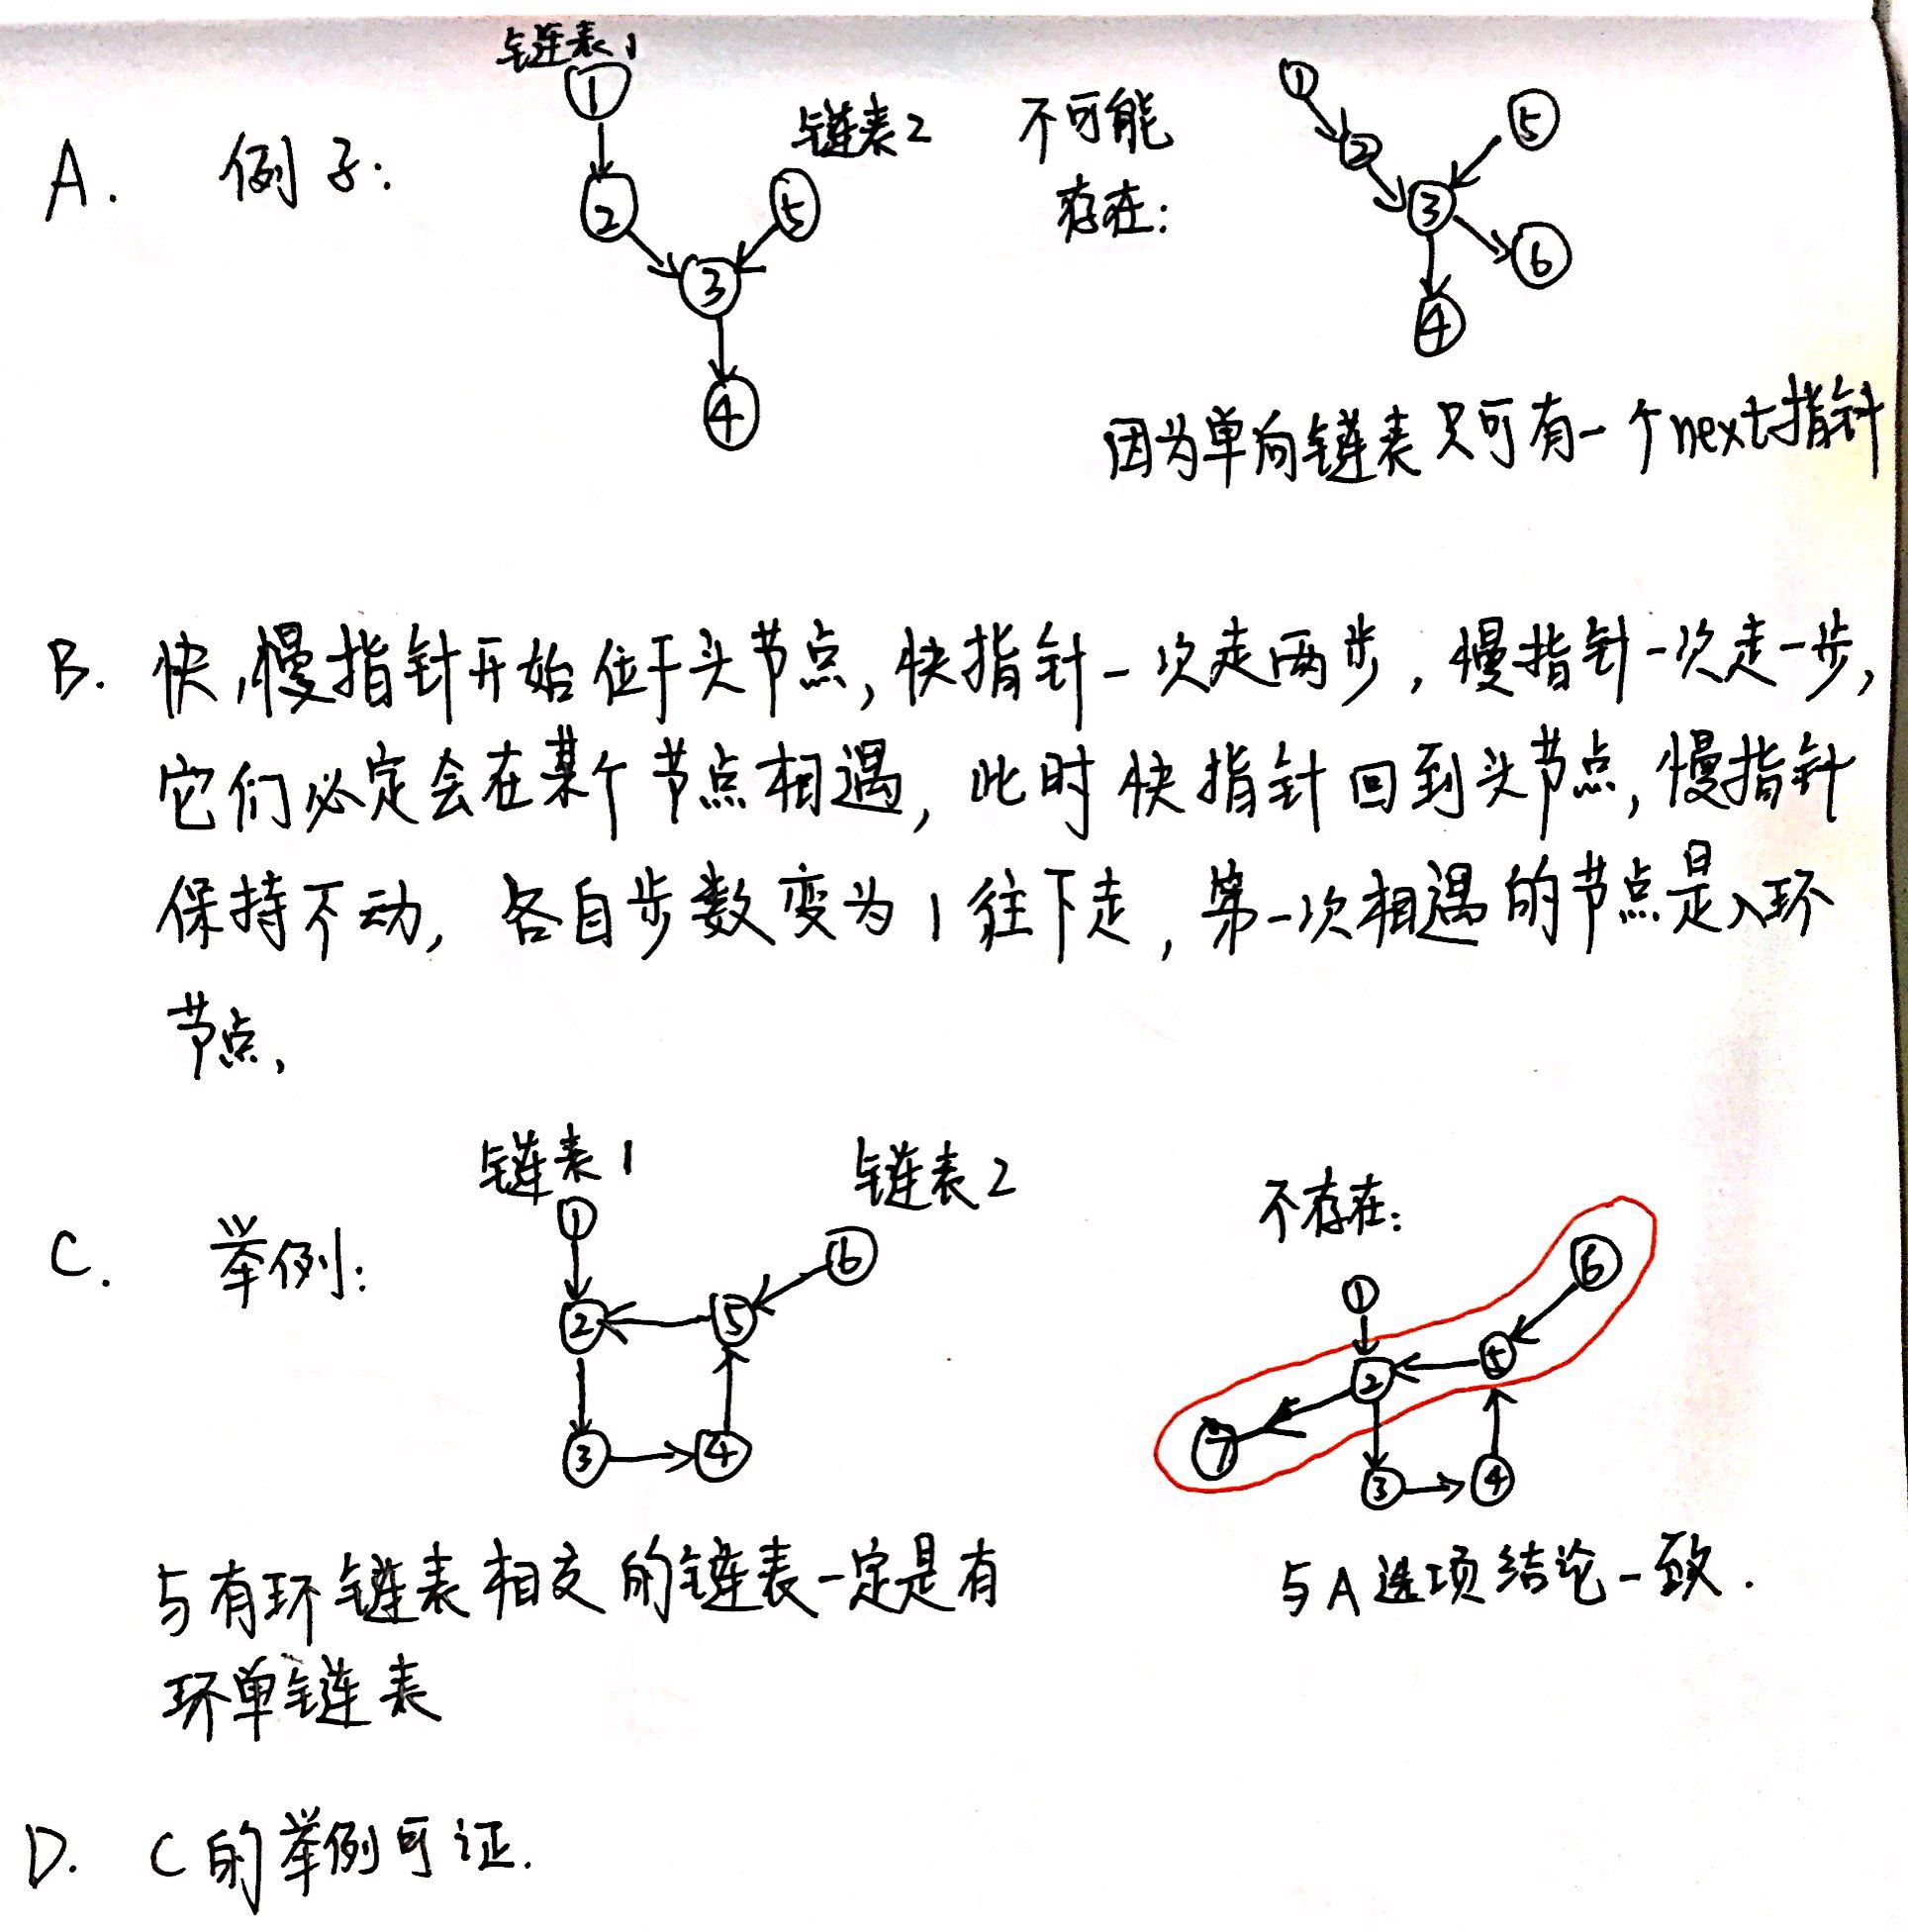 链表1
①
链表2
不可能
存在:
①
②
⑤
③
⑥
④
A. 例子:
②
⑤
③
④
因为单向链表只可有一个next指针
B. 快,慢指针开始位于头节点,快指针一次走两步,慢指针一次走一步,
它们必定会在某个节点相遇,此时快指针回到头节点,慢指针
保持不动,各自步数变为1往下走,第一次相遇的节点是入环
节点,
链表1
链表2
不存在:
C. 举例:
①
⑥
②
⑤
③
④
①
⑥
②
⑤
⑦
③
④
与有环链表相交的链表一定是有
环单链表
与A选项结论一致.
D. C的举例可证.